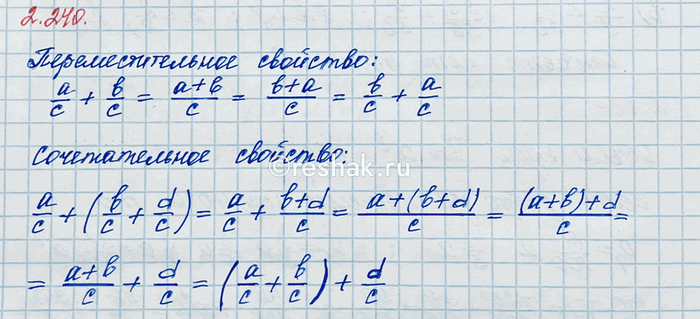 2.240.
Переместительное свойство:
a/c + b/c = (a+b)/c = (b+a)/c = b/c + a/c
Сочетательное свойство:
reshak.ru
a/c + (b/c + d/c) = a/c + (b+d)/c = (a+(b+d))/c = ((a+b)+d)/c =
= (a+b)/c + d/c = (a/c + b/c) + d/c